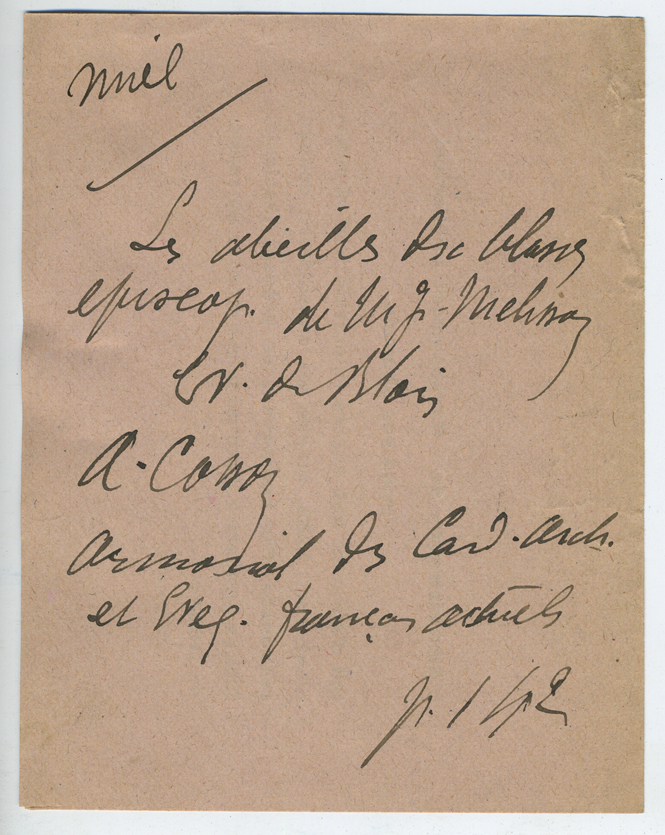 miel
Les abeilles du blason
episcop. de Mgr Melisson
Ev. de Blois
A. Cosson
Armorial des Card. Arch.
et Eveq. français actuels
p. 142